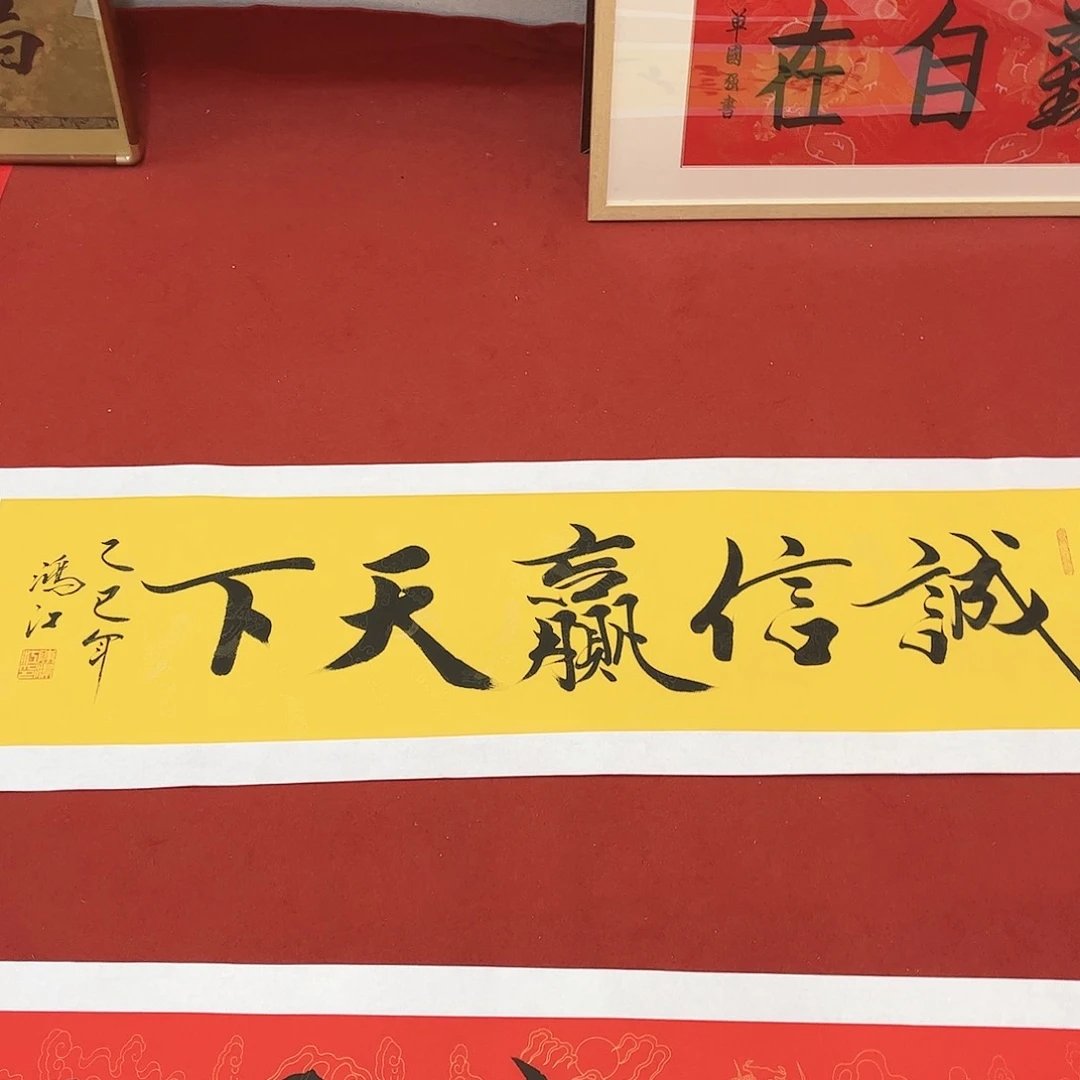 誠信贏天下
乙巳年
鴻江
自在
單國強書